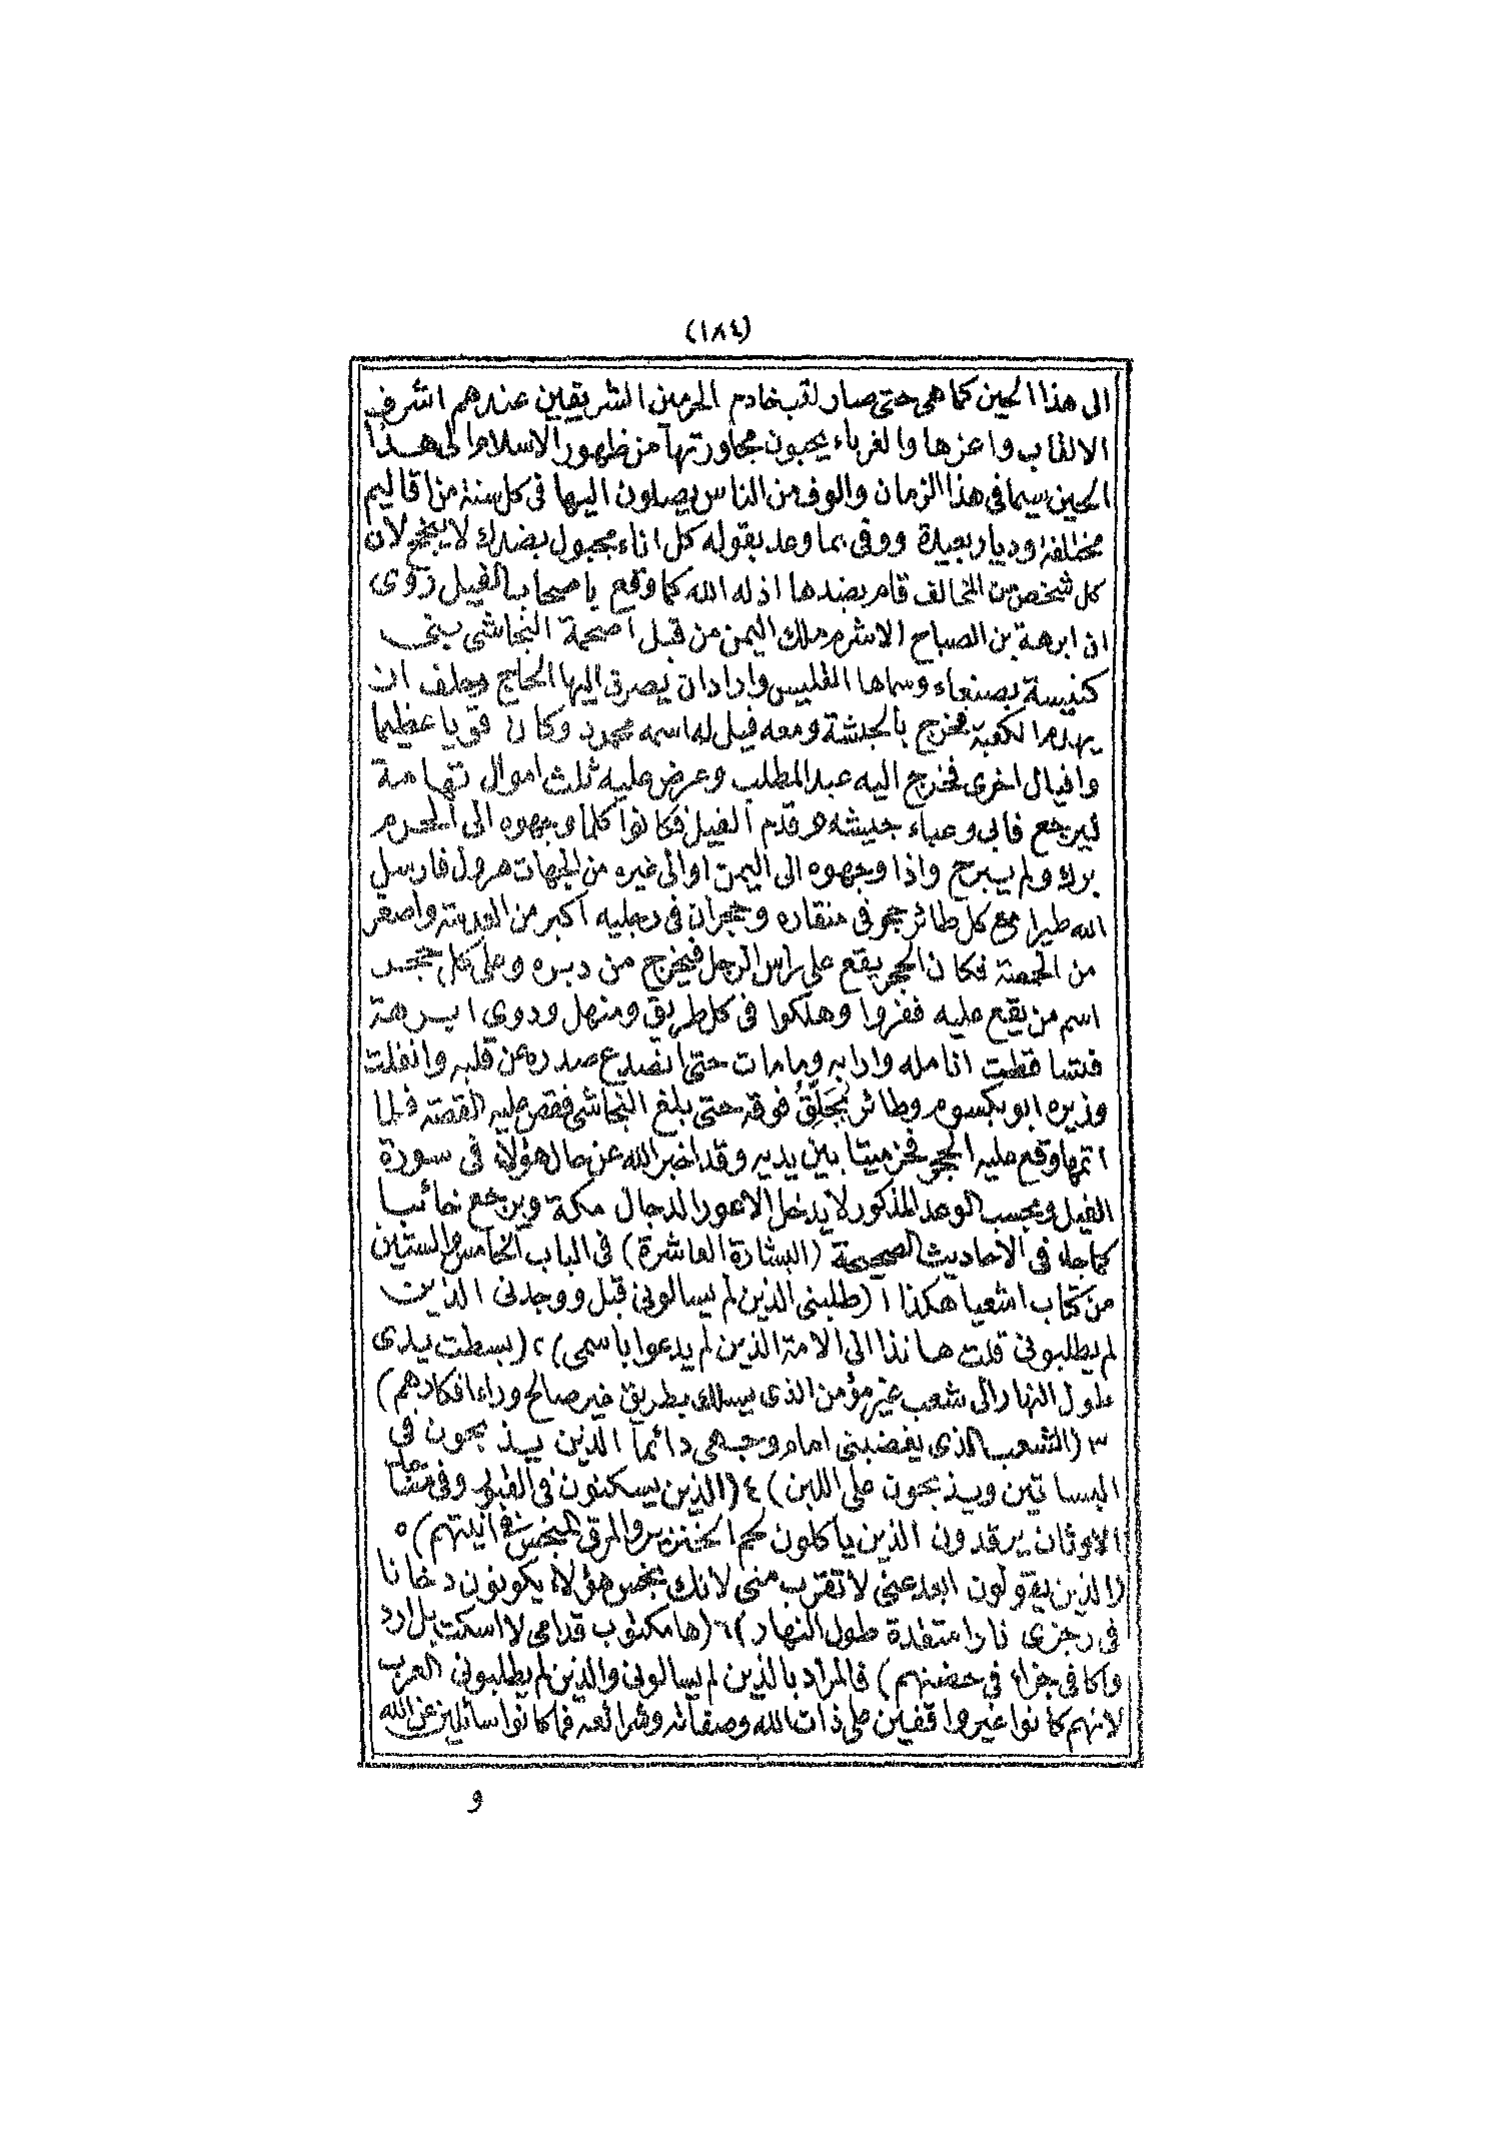 (١٨٤)
الى هذا الحين كما هى حتى صار لقب خادم الحرمين الشريفين عندهم اشرف
الالقاب واعزها والغرباء يحبون مجاورتها من ظهور الاسلام الى هذا
الحين سيما فى هذا الزمان والوف من الناس يصلون اليها فى كل سنة من اقاليم
مختلفة وديار بعيدة ووفى بما وعد بقوله كل اناء مجبول بضدك لا ينجح لان
كل شخص من المخالف قام بضدها اذله الله كما وقع باصحاب الفيل روى
ان ابرهة بن الصباح الاشرم ملك اليمن من قبل اصحمة النجاشى بنى
كنيسة بصنعاء وسماها القليس واراد ان يصرف اليها الحاج وحلف ان
يهدم الكعبة فخرج بالحبشة ومعه فيل له اسمه محمود وكان قويا عظيما
وافيال اخرى فخرج اليه عبد المطلب وعرض عليه ثلث اموال تهامة
ليرجع فابى وعباء جيشه وقدم الفيل فكانوا كلما وجهوه الى الحرم
برك ولم يبرح واذا وجهوه الى اليمن او الى غيره من الجهات هرول فارسل
الله طيرا مع كل طائر حجر فى منقاره وحجران فى رجليه اكبر من العدسة واصغر
من الحمصة فكان الحجر يقع على راس الرجل فيخرج من دبره وعلى كل حجر
اسم من يقع عليه ففروا وهلكوا فى كل طريق ومنهل ودوى ابرهة
فتساقطت انامله وارابه ومامات حتى انصدع صدره عن قلبه وانفلت
وزيره ابو يكسوم وطائر يُحَلِّقُ فوقه حتى بلغ النجاشى فقص عليه القصة فلما
اتمها وقع عليه الحجر فخر ميتا بين يديه وقد اخبر الله عن حال هؤلاء فى سورة
الفيل وبحسب الوعد المذكور لا يدخل الاعور الدجال مكة ويرجع خائبا
كما جاء فى الاحاديث الصحيحة (البشارة العاشرة) فى الباب الخامس والستين
من كتاب اشعيا هكذا ١ (طلبنى الذين لم يسالونى قبل ووجدنى الذين
لم يطلبونى قلت ها نذا الى الامة الذين لم يدعوا باسمى) ٢ (بسطت يدى
طول النهار الى شعب غير مؤمن الذى يسلك بطريق غير صالح وراء افكارهم)
٣ (الشعب الذى يغضبنى امام وجهى دائما الذين يذبحون فى
البساتين ويذبحون على اللبن) ٤ (الذين يسكنون فى القبور وفى مشا
الاوثان يرقدون الذين ياكلون لحم الخنزير والمرق المنجس فى آنيتهم) ٥
(الذين يقولون ابعد عنى لا تقترب منى لانك نجس هؤلاء يكونون دخانا
فى رجزى نارا متقدة طول النهار) ٦ (ها مكتوب قدامى لا اسكت بل ارد
واكافى جزاء فى حضنهم) فالمراد بالذين لم يسالونى والذين لم يطلبونى العرب
لانهم كانوا غير واقفين على ذات الله وصفاته وشرائعه فما كانوا سائلين عن الله
و